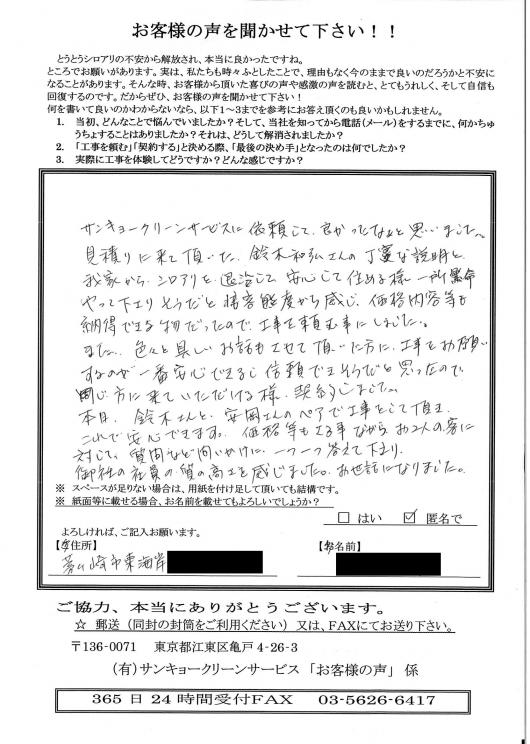 お客様の声を聞かせて下さい！！
とうとうシロアリの不安から解放され、本当に良かったですね。
ところでお願いがあります。実は、私たちも時々ふとしたことで、理由もなく今のままで良いのだろうかと不安に
なることがあります。そんな時、お客様から頂いた喜びの声や感激の声を読むと、とてもうれしく、そして自信も
回復するのです。だからぜひ、お客様の声を聞かせて下さい！
何を書いて良いのかわからないなら、以下１～３までを参考にお答え頂くのも良いかもしれません。
1. 当初、どんなことで悩んでいましたか？そして、当社を知ってから電話（メール）をするまでに、何かちゅ
うちょすることはありましたか？それは、どうして解消されましたか？
2. 「工事を頼む」「契約する」と決める際、「最後の決め手」となったのは何でしたか？
3. 実際に工事を体験してどうですか？どんな感じですか？
サンキョークリーンサービスに依頼して、良かったなぁと思いました。
見積りに来て頂いた、鈴木和弘さんの丁寧な説明と、
我家から、シロアリを退治して安心して住める様一所懸命
やって下さりそうだと接客態度から感じ、価格内容等も
納得できる物だったので、工事を頼む事にしました。
また、色々と楽しいお話もさせて頂いた方に、工事をお願い
するのが一番安心できるし信頼できそうだと思ったので、
同じ方に来ていただける様、契約しました。
本日、鈴木さんと、安岡さんのペアで工事をして頂き、
これで安心できます。価格等もさる事ながら、お2人の客に
対して、質問など問いかけに、一つ一つ答えて下さり、
御社の社員の質の高さを感じました。お世話になりました。
※ スペースが足りない場合は、用紙を付け足して頂いても結構です。
※ 紙面等に載せる場合、お名前を載せてもよろしいでしょうか？
□ はい ☑ 匿名で
よろしければ、ご記入お願います。
【ご住所】 【お名前】
茅ヶ崎市東海岸
ご協力、本当にありがとうございます。
☆ 郵送（同封の封筒をご利用ください）又は、FAXにてお送り下さい。
〒136-0071 東京都江東区亀戸 4-26-3
（有）サンキョークリーンサービス 「お客様の声」 係
365 日 24 時間受付FAX 03-5626-6417